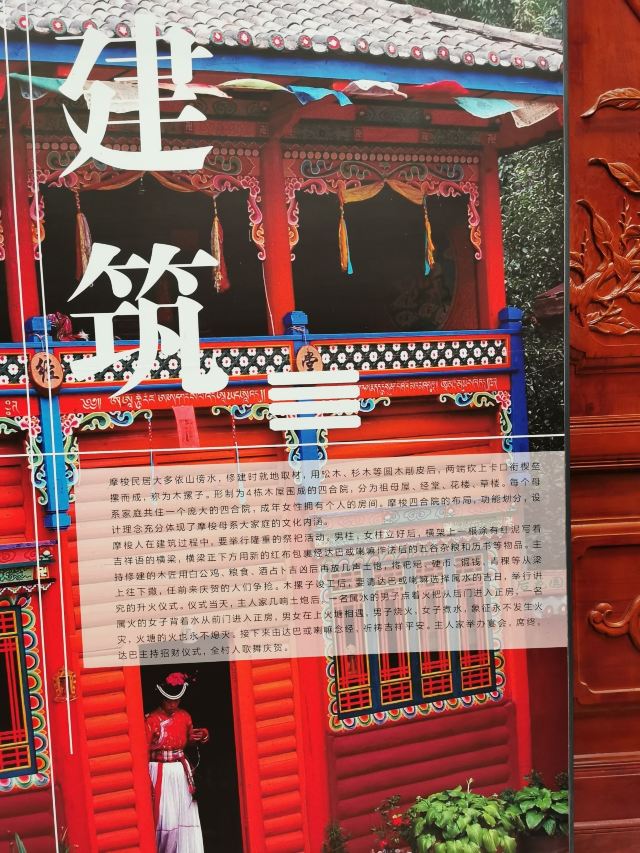 建
筑
摩梭民居大多依山傍水，修建时就地取材，用松木、杉木等圆木削皮后，两端砍上卡口衔楔垒
摞而成，称为木摞子。形制为4栋木摞围成的四合院，分为祖母屋、经堂、花楼、草楼。每个母
系家庭共住一个庞大的四合院，成年女性拥有个人的房间。摩梭四合院的布局，功能划分，设
计理念充分体现了摩梭母系大家庭的文化内涵。
摩梭人在建筑过程中，要举行隆重的祭祀活动，男柱，女柱立好后，横架上一根涂有红泥写着
吉祥语的横梁，横梁正下方用新的红布包裹经达巴或喇嘛作法后的五谷杂粮和历书等物品。主
持修建的木匠用白公鸡、粮食、酒占卜吉凶后再放几声土炮，将粑粑、硬币、铜钱、青稞等从梁
上往下撒，任前来庆贺的人们争抢。木摞子竣工后，要请达巴或喇嘛选择属水的吉日，举行讲
究的升火仪式。仪式当天，主人家几响土炮后，一名属水的男子点着火把从后门进入正房，一名
属火的女子背着水从前门进入正房，男女在上火塘相遇，男子烧火，女子煮水，象征永不发生火
灾，火塘的火也永不熄灭。接下来由达巴或喇嘛念经，祈祷吉祥平安。主人家举办宴会，席终，
达巴主持招财仪式，全村人歌舞庆贺。